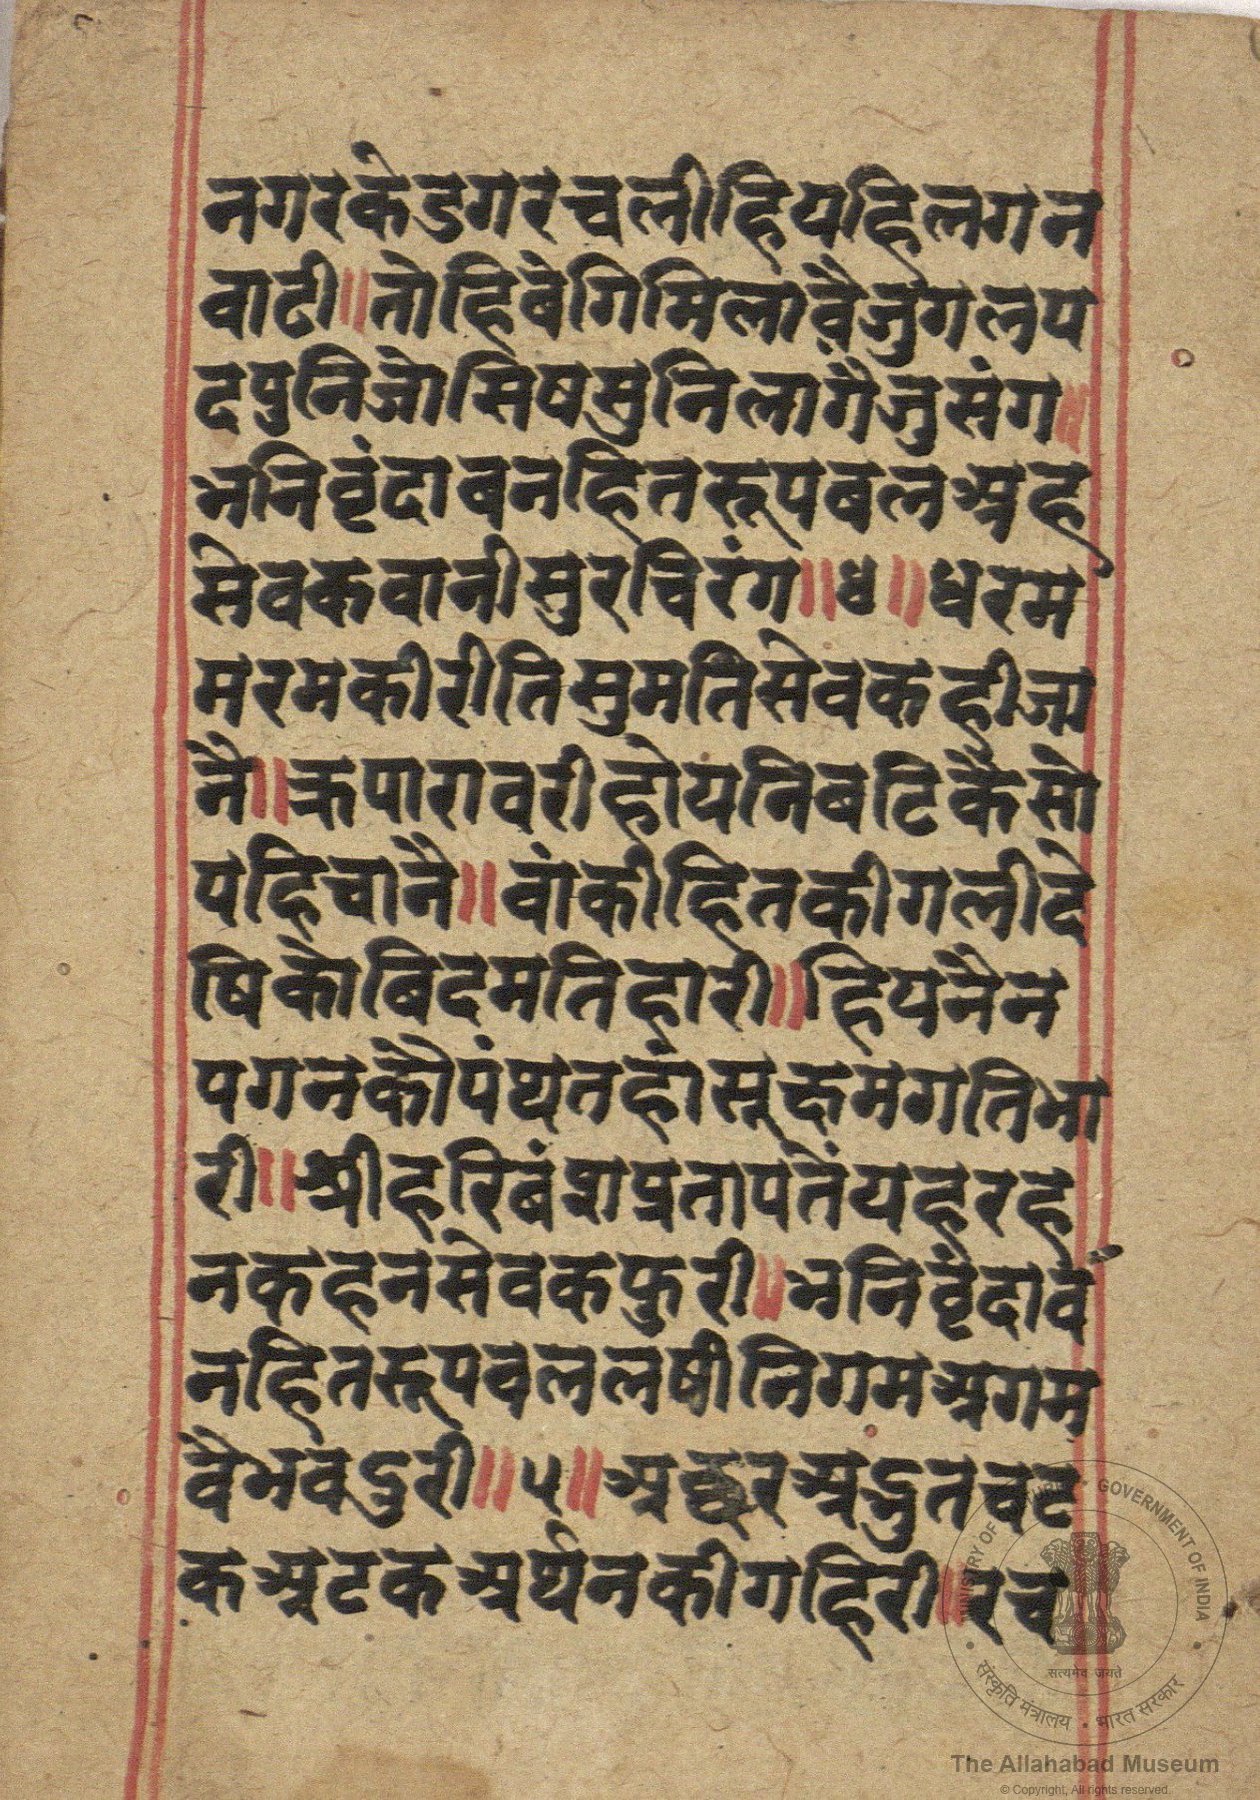 नगरकेडगरचलीहियहिलगन
वाटी॥तोहिबेगिमिलावैजुगलप
दपुनिजोसिषसुनिलागैजुसंग॥
भनिवृंदाबनहितरूपबलअह
सेवकवानीसुरचिरंग॥४॥धरम
मरमकीरीतिसुमतिसेवकहीजा
नै॥क्रपारावरीहोयनिबटिकैसो
पहिचानै॥वांकीहितकीगलीदे
षिकोबिदमतिहारी॥हियनैन
पगनकौपंथतहांसूक्षमगतिभा
री॥श्रीहरिबंशप्रतापतेंयहरह
नकहनसेवकफुरी॥भनिवृंदाव
नहितरूपवललषीनिगमअगम
वैभवदुरी॥५॥अछरअद्भुतवट
कअटकअर्थनकीगहिरी॥रच
MINISTRY OF CULTURE · GOVERNMENT OF INDIA
सत्यमेव जयते
संस्कृति मंत्रालय · भारत सरकार
The Allahabad Museum
© Copyright, All rights reserved.